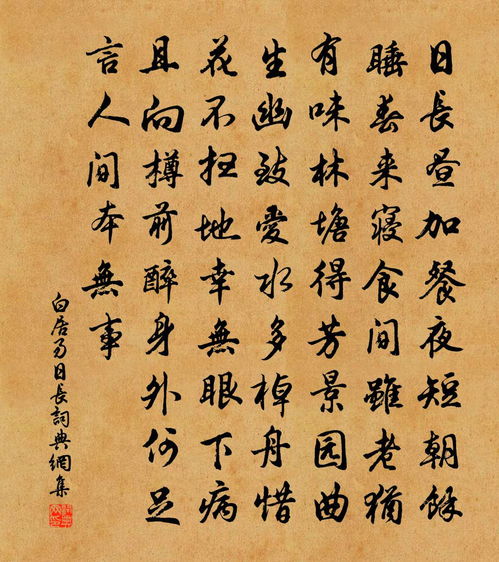 日長昼加餐夜短朝餘
睡春来寢食间雖老猶
有味林塘得芳景园曲
生幽致愛水多棹舟惜
花不扫地幸無眼下病
且向樽前醉身外何足
言人间本無事
白居易日長詞典網集